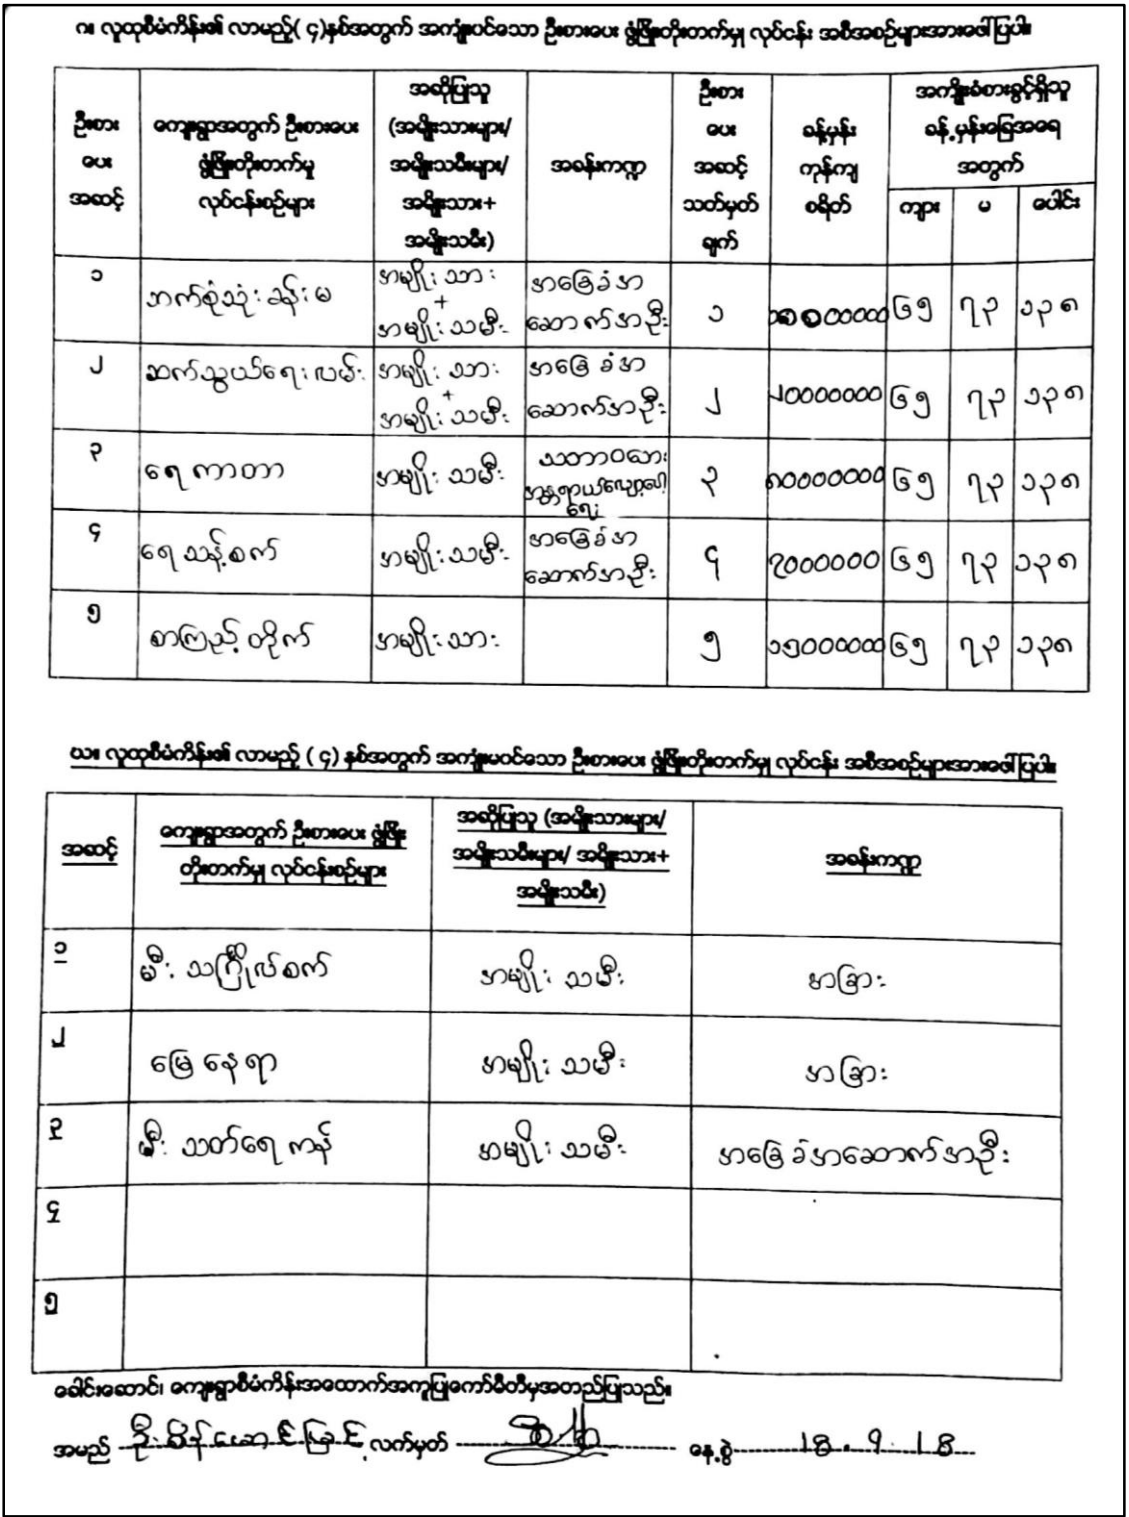 ဂ။ လူထုစီမံကိန်း၏ လာမည့်( ၄)နှစ်အတွက် အကျုံးပင်သော ဦးစားပေး ဖွံ့ဖြိုးတိုးတက်မှု လုပ်ငန်း အစီအစဉ်များအားဖေါ်ပြပါ။
ဦးစား ပေး အဆင့်
ကျေးရွာအတွက် ဦးစားပေး ဖွံ့ဖြိုးတိုးတက်မှု လုပ်ငန်းစဉ်များ
အဆိုပြုသူ (အမျိုးသားများ/ အမျိုးသမီးများ/ အမျိုးသား+ အမျိုးသမီး)
အခန်းကဏ္ဍ
ဦးစား ပေး အဆင့် သတ်မှတ် ချက်
ခန့်မှန်း ကုန်ကျ စရိတ်
အကျိုးခံစားခွင့်ရှိသူ ခန့်မှန်းခြေအရေ အတွက်
ကျား မ ပေါင်း
၁ ဘက်စုံသုံးခန်းမ အမျိုးသား + အမျိုးသမီး အခြေခံအ ဆောက်အဦး ၁ ၆၅ ၇၃ ၁၃၈
၂ ဆက်သွယ်ရေးလမ်း အမျိုးသား + အမျိုးသမီး အခြေခံအ ဆောက်အဦး ၂ ၂၀၀၀၀၀၀၀ ၆၅ ၇၃ ၁၃၈
၃ ရေကာတာ အမျိုးသမီး သဘာဝဘေး အန္တရာယ်လျော့ပါး ရေး ၃ ၈၀၀၀၀၀၀၀ ၆၅ ၇၃ ၁၃၈
၄ ရေသန့်စက် အမျိုးသမီး အခြေခံအ ဆောက်အဦး ၄ ၇၀၀၀၀၀၀ ၆၅ ၇၃ ၁၃၈
၅ စာကြည့်တိုက် အမျိုးသား ၅ ၁၅၀၀၀၀၀၀ ၆၅ ၇၃ ၁၃၈
ဃ။ လူထုစီမံကိန်း၏ လာမည့် ( ၄) နှစ်အတွက် အကျုံးမဝင်သော ဦးစားပေး ဖွံ့ဖြိုးတိုးတက်မှု လုပ်ငန်း အစီအစဉ်များအားဖေါ်ပြပါ။
အဆင့်
ကျေးရွာအတွက် ဦးစားပေး ဖွံ့ဖြိုး တိုးတက်မှု လုပ်ငန်းစဉ်များ
အဆိုပြုသူ (အမျိုးသားများ/ အမျိုးသမီးများ/ အမျိုးသား+ အမျိုးသမီး)
အခန်းကဏ္ဍ
၁ မီးသင်္ဂြိုလ်စက် အမျိုးသမီး အခြား
၂ မြေနေရာ အမျိုးသမီး အခြား
၃ မီးသတ်ရေကန် အမျိုးသမီး အခြေခံအဆောက်အဦး
၄
၅
ခေါင်းဆောင်၊ ကျေးရွာစီမံကိန်းအထောက်အကူပြုကော်မီတီမှအတည်ပြုသည်။
အမည် ဦးစိန်အောင်မြင့် လက်မှတ် နေ့စွဲ 18.9.18